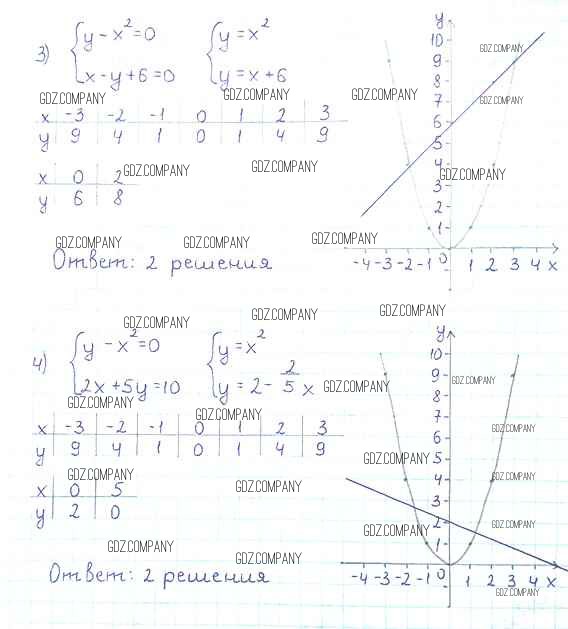 3) { y - x² = 0    { y = x²
{ x - y + 6 = 0    { y = x + 6
GDZ.COMPANY GDZ.COMPANY GDZ.COMPANY GDZ.COMPANY
x -3 -2 -1 0 1 2 3
y 9 4 1 0 1 4 9
GDZ.COMPANY
GDZ.COMPANY GDZ.COMPANY GDZ.COMPANY
x 0 2
y 6 8
GDZ.COMPANY GDZ.COMPANY GDZ.COMPANY
Ответ: 2 решения
y
10
9
8
7
6
5
4
3
2
1
-4 -3 -2 -1 0 1 2 3 4 x
GDZ.COMPANY GDZ.COMPANY GDZ.COMPANY
4) { y - x² = 0    { y = x²
{ 2x + 5y = 10    { y = 2 - 2/5 x
GDZ.COMPANY GDZ.COMPANY
GDZ.COMPANY GDZ.COMPANY
x -3 -2 -1 0 1 2 3
y 9 4 1 0 1 4 9
GDZ.COMPANY
GDZ.COMPANY GDZ.COMPANY
x 0 5
y 2 0
GDZ.COMPANY GDZ.COMPANY
GDZ.COMPANY GDZ.COMPANY
GDZ.COMPANY GDZ.COMPANY
Ответ: 2 решения
y
10
9
8
7
6
5
4
3
2
1
-4 -3 -2 -1 0 1 2 3 4 x
GDZ.COMPANY